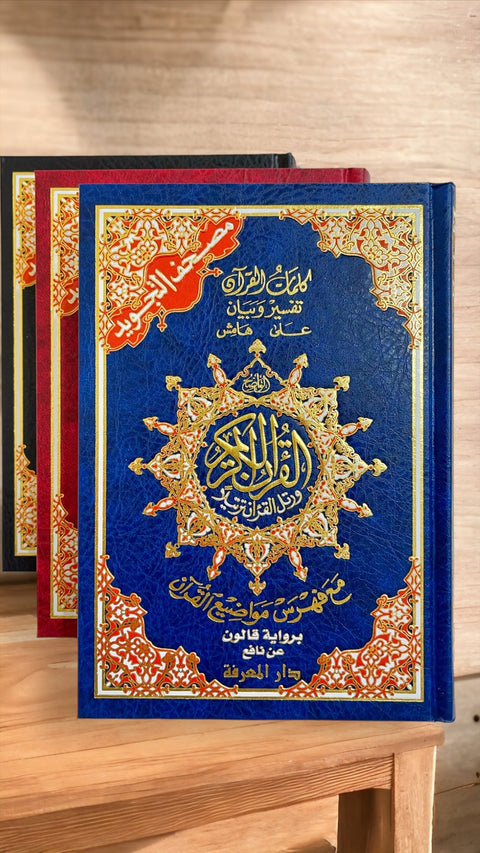 مصحف التجويد
كلمات القرآن
تفسير وبيان
على هامش
القرآن الكريم
ورتل القرآن ترتيلا
مع فهرس مواضيع القرآن
برواية قالون
عن نافع
دار المعرفة